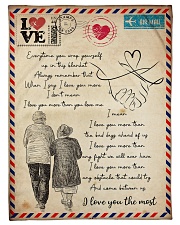 LOVE
AIR MAIL
Everytime you wrap yourself
up in this blanket
Always remember that
When I say I love you more
I don't mean
I love you more than you love me
I mean
I love you more than
the bad days ahead of us
I love you more than
any fight we will ever have
I love you more than
any obstacle that could try
And come between us
I love you the most